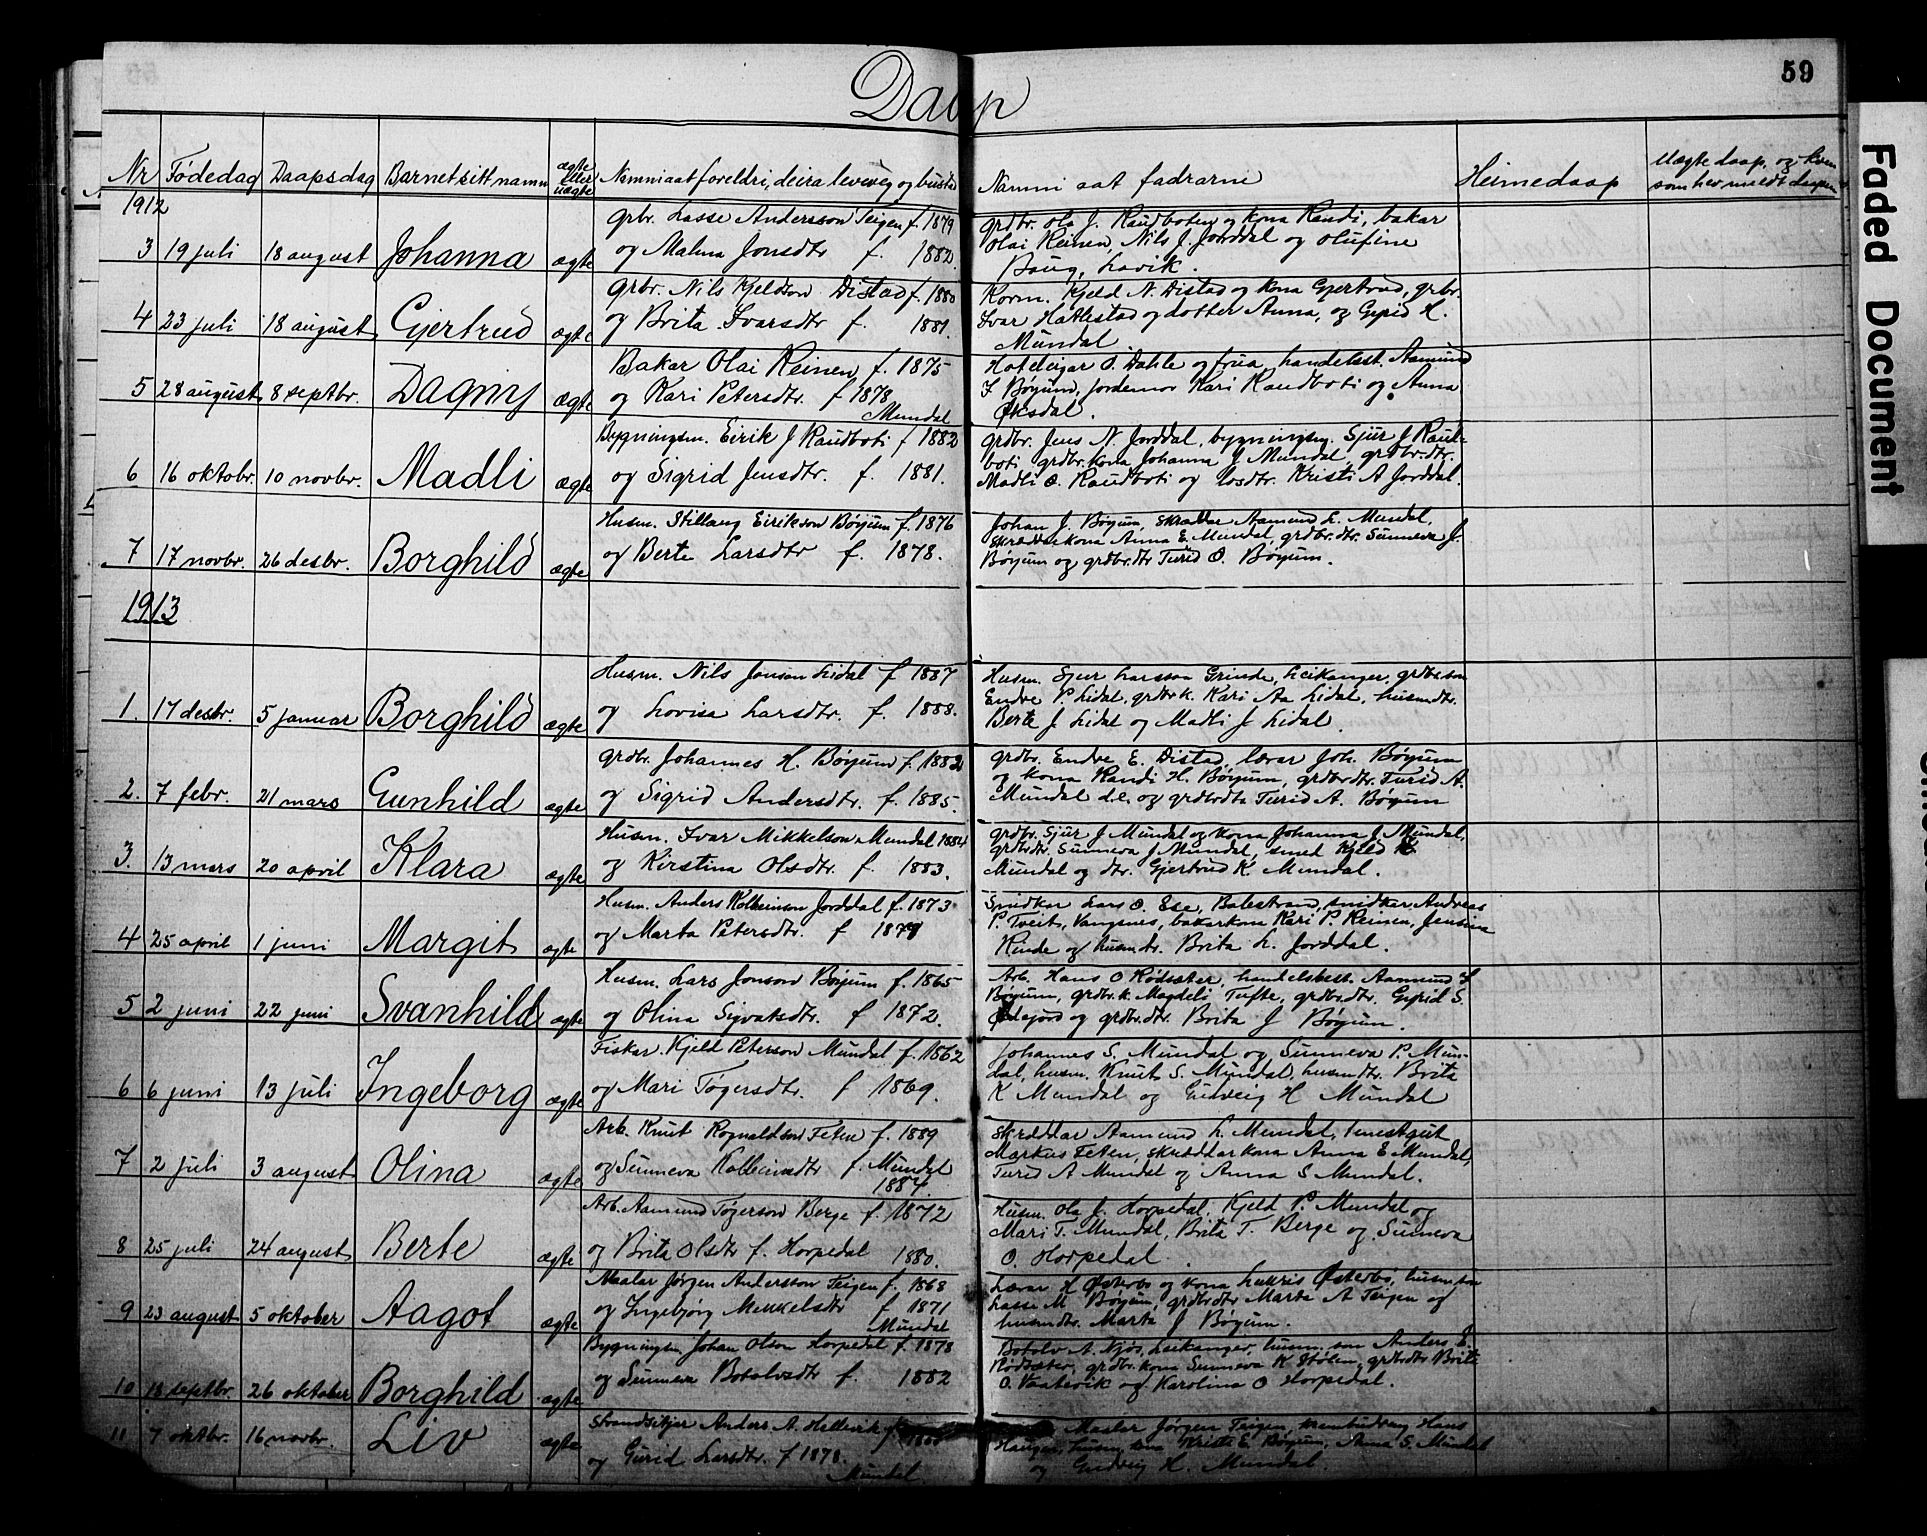 59
Daap
Nr Fødedag Daapsdag Barnet sitt namn ægte eller uægte Namni aat foreldri, deira leveveg og bustad Namni aat fadrarne Heimedaap Uægte daap, og kven som hev meldt daapen
1912
3 19 juli 18 august Johanna ægte
grbr. Lasse Andersson Teigen f. 1879
og Malina Jonsdtr f. 1882.
grdbr. Ola J. Raudboten og kona Randi, bakar
Olai Reinen, Nils J. Jorddal og Olufine
Lavik.
4 23 juli 18 august Gjertrud ægte
Grbr. Nils Kjeldson Distad f. 1880
og Brita Ivarsdtr f. 1881.
Korm. Kjeld N. Distad og kona Gjertrud, grbr.
Ivar Hatlestad og dotter Anna, og H.
Mundal
5 28 august 8 septbr. Dagny ægte
Bakar Olai Reinen f. 1875
og Kari Petersdtr. f 1878
Mundal
Hoteleigar O. Dahle og frua, handelsst. Aamund
I Bøyum, Jordemor Kari Raudboti og Anna
6 16 oktobr. 10 novbr. Madli ægte
Bygningsm. Eirik J Raudboti f 1882
og Sigrid Jensdtr. f. 1881.
grdbr. Jens N. Jorddal, bygningsm. Sjur J Raud-
boti grdbr. kona Johanna J. Mundal, grdbr.dtr.
Madli O. Raudboti og Kristi A Jorddal.
7 17 novbr. 26 desbr. Borghild ægte
Husm. Stillaug Eirikson Bøyum f. 1876
og Berte Larsdtr f. 1878.
Johan J. Bøyum, skræddar Aamund L. Mundal,
Anna E. Mundal, grdbr.dtr. Sunneva J.
Bøyum og grdbr.dtr Turid O. Bøyum.
1913
1. 17 desbr. 5 januar Borghild ægte
Husm. Nils Jonson Lidal f 1887
og Lovisa Larsdtr. f. 1888.
Husm. Sjur Larsson Grinde, Leikanger, grdbr.son
Endre P. Lidal, grdbr.k. Kari Aa Lidal, husm.dtr.
Berte J Lidal og Madli J Lidal.
2. 7 febr. 21 mars Gunhild ægte
grdbr. Johannes H. Bøyum f. 1882
og Sigrid Andersdtr. f. 1885.
grdbr. Endre E. Distad, lærar Joh. Bøyum
og kona Randi H. Bøyum, grdbrdtr. Turid A.
Mundal d.e. og grdbrdtr Turid A. Bøyum
3. 13 mars 20 april Klara ægte
Husm. Ivar Mikkelson Mundal 1884
og Kirstina Olsdtr. f. 1883.
grdbr. Sjur J Mundal og kona Johanna J. Mundal,
grdbrdtr. Sunneva J Mundal, smed Kjeld K
Mundal og dtr. Gjertrud K Mundal.
4 25 april 1 juni Margit ægte
Husm. Anders Kolbeinson Jorddal f. 1873
og Marta Petersdtr. f
Snidkar Lars O. Ese, Balestrand, snidkar Andreas
P. Tveit, Vangsnes, bakarkona Kari P. Reinen, Jensina
Rinde og husm.dtr. Brita L. Jorddal.
5 2 juni 22 juni Svanhild ægte
Husm. Lars Jonson Bøyum f. 1865
og Olina Sigvatsdtr. f 1872.
Arb. Hans O Rødseter, handelsbest. Aamund I
Bøyum, grdbr.k. Magdeli Tufte, grdbr.dtr. Gyrid S.
og grdbr.dtr. Brita J Bøyum.
6 6 juni 13 juli Ingeborg ægte
Fiskar. Kjeld Peterson Mundal f. 1862
og Mari Tøgersdtr. f 1869.
Johannes S. Mundal og Sunneva P. Mun-
dal, husm. Knut S Mundal, husm.dtr. Brita
K Mundal og Gudveig H Mundal
7 2 juli 3 august Olina ægte
Arb. Knut Rognaldson Feten f. 1889
og Sunneva Kolbeinsdtr f. Mundal
1884.
Skræddar Aamund L. Mundal, tenestgut
Markus Feten, skræddarkona Anna E Mundal,
Turid A Mundal og Anna S Mundal.
8 25 juli 24 august Berte ægte
Arb. Aamund Tøgerson Berge f. 1872
og Brita Olsdtr f. Horpedal 1880.
Husm. Ola J. Horpedal, Kjeld P. Mundal og
Mari T. Mundal, Brita T. Berge og Sunneva
O. Horpedal.
9 23 august 5 oktober Aagot ægte
Maalar Jørgen Andersson Teigen f. 1868
og Ingebjørg Mikkelsdtr f 1871
Mundal
Lærar H Østerbø og kona Laukris Østerbø, husm.son
Lasse M Bøyum, grdbrdtr Marta A Teigen og
husm.dtr. Marta J Bøyum.
10 18 septbr. 26 oktober Borghild ægte
Bygningsm. Johan Olson Horpedal f. 1878
og Sunneva Botolvsdtr f. 1882
Botolv A. Njøs, Leikanger, husm. son Anders E.
Rødseter, grdbr. kona Sunneva K Stølen, grdbrdtr Brita
O. Vaatevik og Karolina O Horpedal.
11 7 oktbr. 16 novbr. Liv ægte
Strandsitjar Anders A. f
og Gurid Larsdtr. f 1878.
Mundal
Maalar Jørgen Teigen, Hans
Haugen, husm. kona Kristi E Bøyum, Anna S. Mundal
og Gudveig H. Mundal.
Faded Document